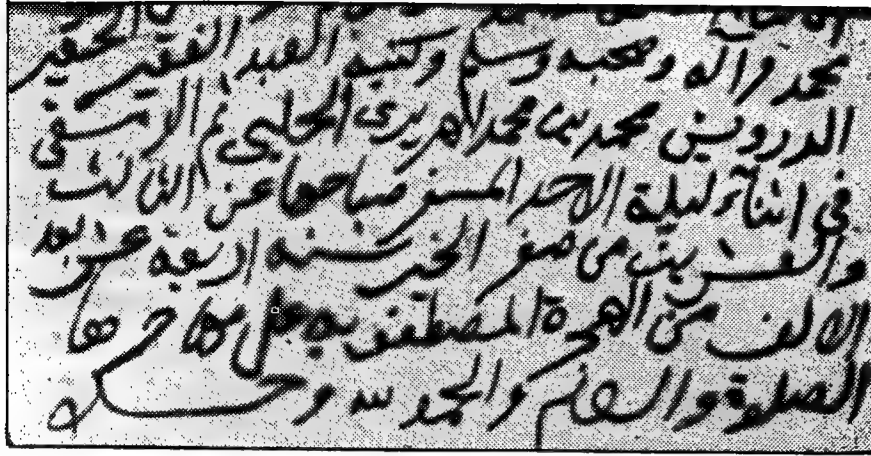 محمد واله وصحبه وسلم وكتبه العبد الفقير الحقير
الدرويش محمد بن محمد الحلبي ثم الدمشقي
في اثناء ليلة الاحد المسفر صباحها عن الثالث
والعشرين من صفر الخير سنة اربعة عشر بعد
الالف من الهجرة المصطفوية على مهاجرها
الصلوة والسلام والحمد لله وحده